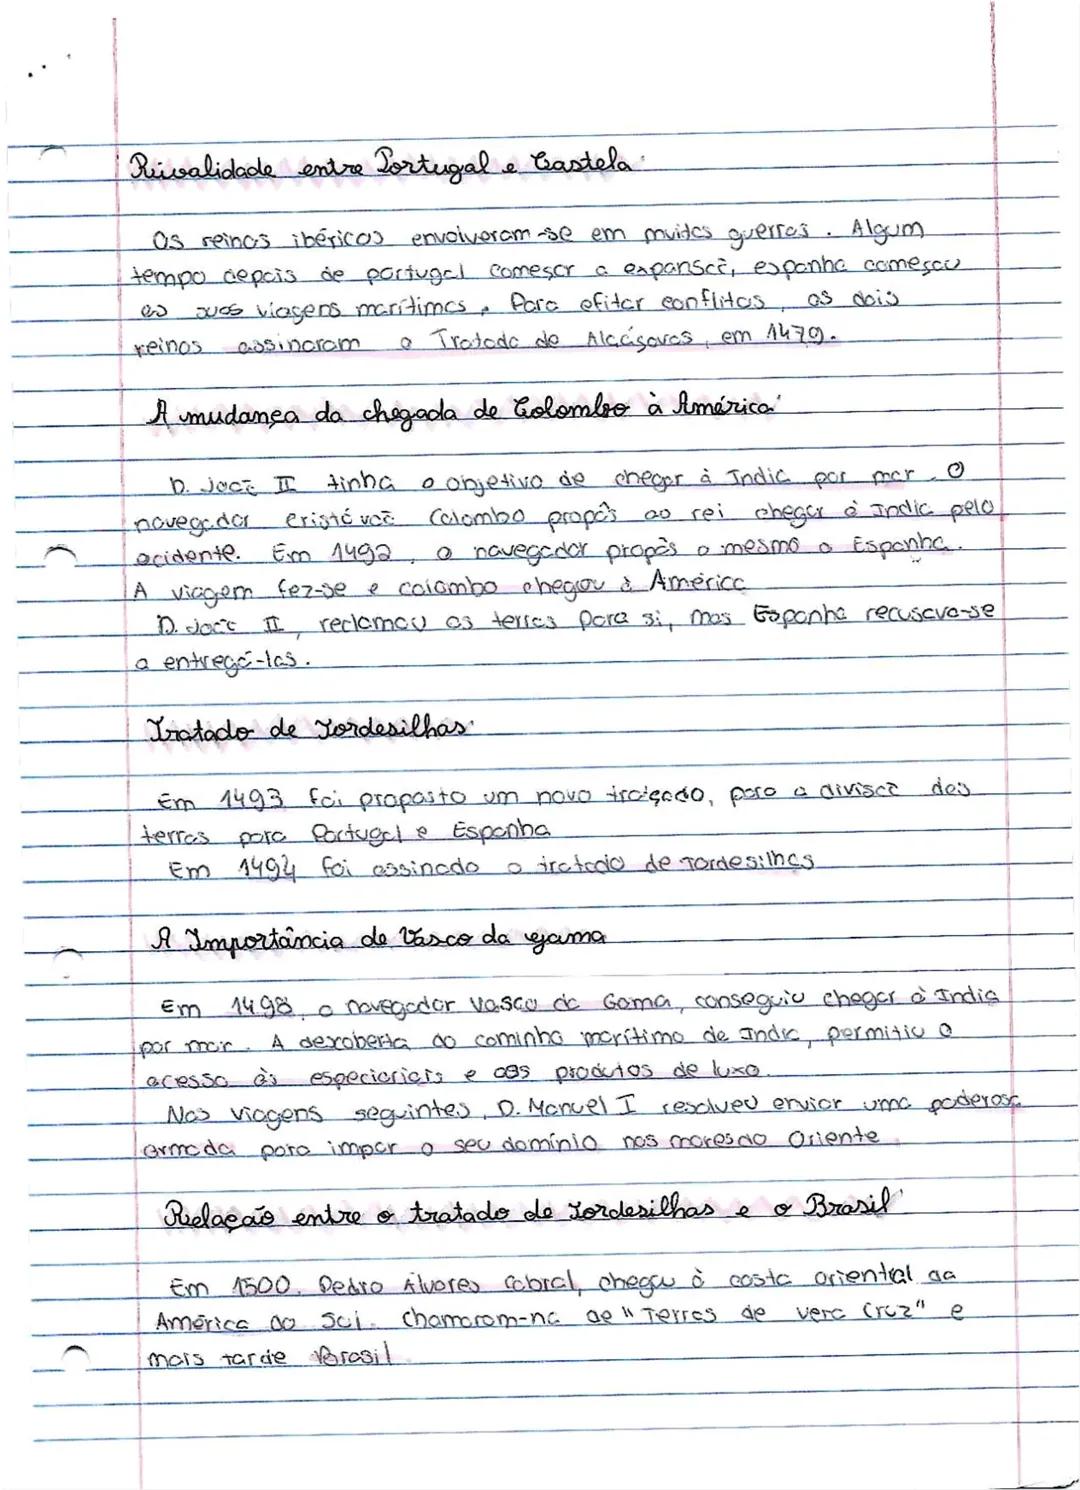 Rivalidade entre Portugal e Castela
Os reinos ibéricos envolveram-se em muitas guerras. Algum
tempo depois de portugal começar a expansão, espanha começou
as suas viagens marítimas. Para efitar conflitos, os dois
reinos assinaram o Tratado de Alcáçovas, em 1479.
A mudança da chegada de Colombo à América
D. João II tinha o objetivo de chegar à Índia por mar. O
navegador cristóvão Colombo propôs ao rei chegar à Índia pelo
ocidente. Em 1492, o navegador propôs o mesmo a Espanha.
A viagem fez-se e colombo chegou à América
D. João II, reclamou as terras para si, mas Espanha recusava-se
a entregá-las.
Tratado de Tordesilhas
Em 1493 foi proposto um novo tratado, para a divisão das
terras para Portugal e Espanha
Em 1494 foi assinado o tratado de Tordesilhas
A Importância de Vasco da gama
Em 1498, o navegador Vasco da Gama, conseguiu chegar à Índia
por mar. A descoberta do caminho marítimo de Índia, permitiu o
acesso às especiarias e aos produtos de luxo.
Nas viagens seguintes, D. Manuel I resolveu enviar uma poderosa
armada para impor o seu domínio nos mares do Oriente
Relação entre o tratado de Tordesilhas e o Brasil
Em 1500. Pedro Álvares Cabral, chegou à costa oriental da
América do Sul. Chamaram-na de "Terras de vera Cruz" e
mais tarde Brasil